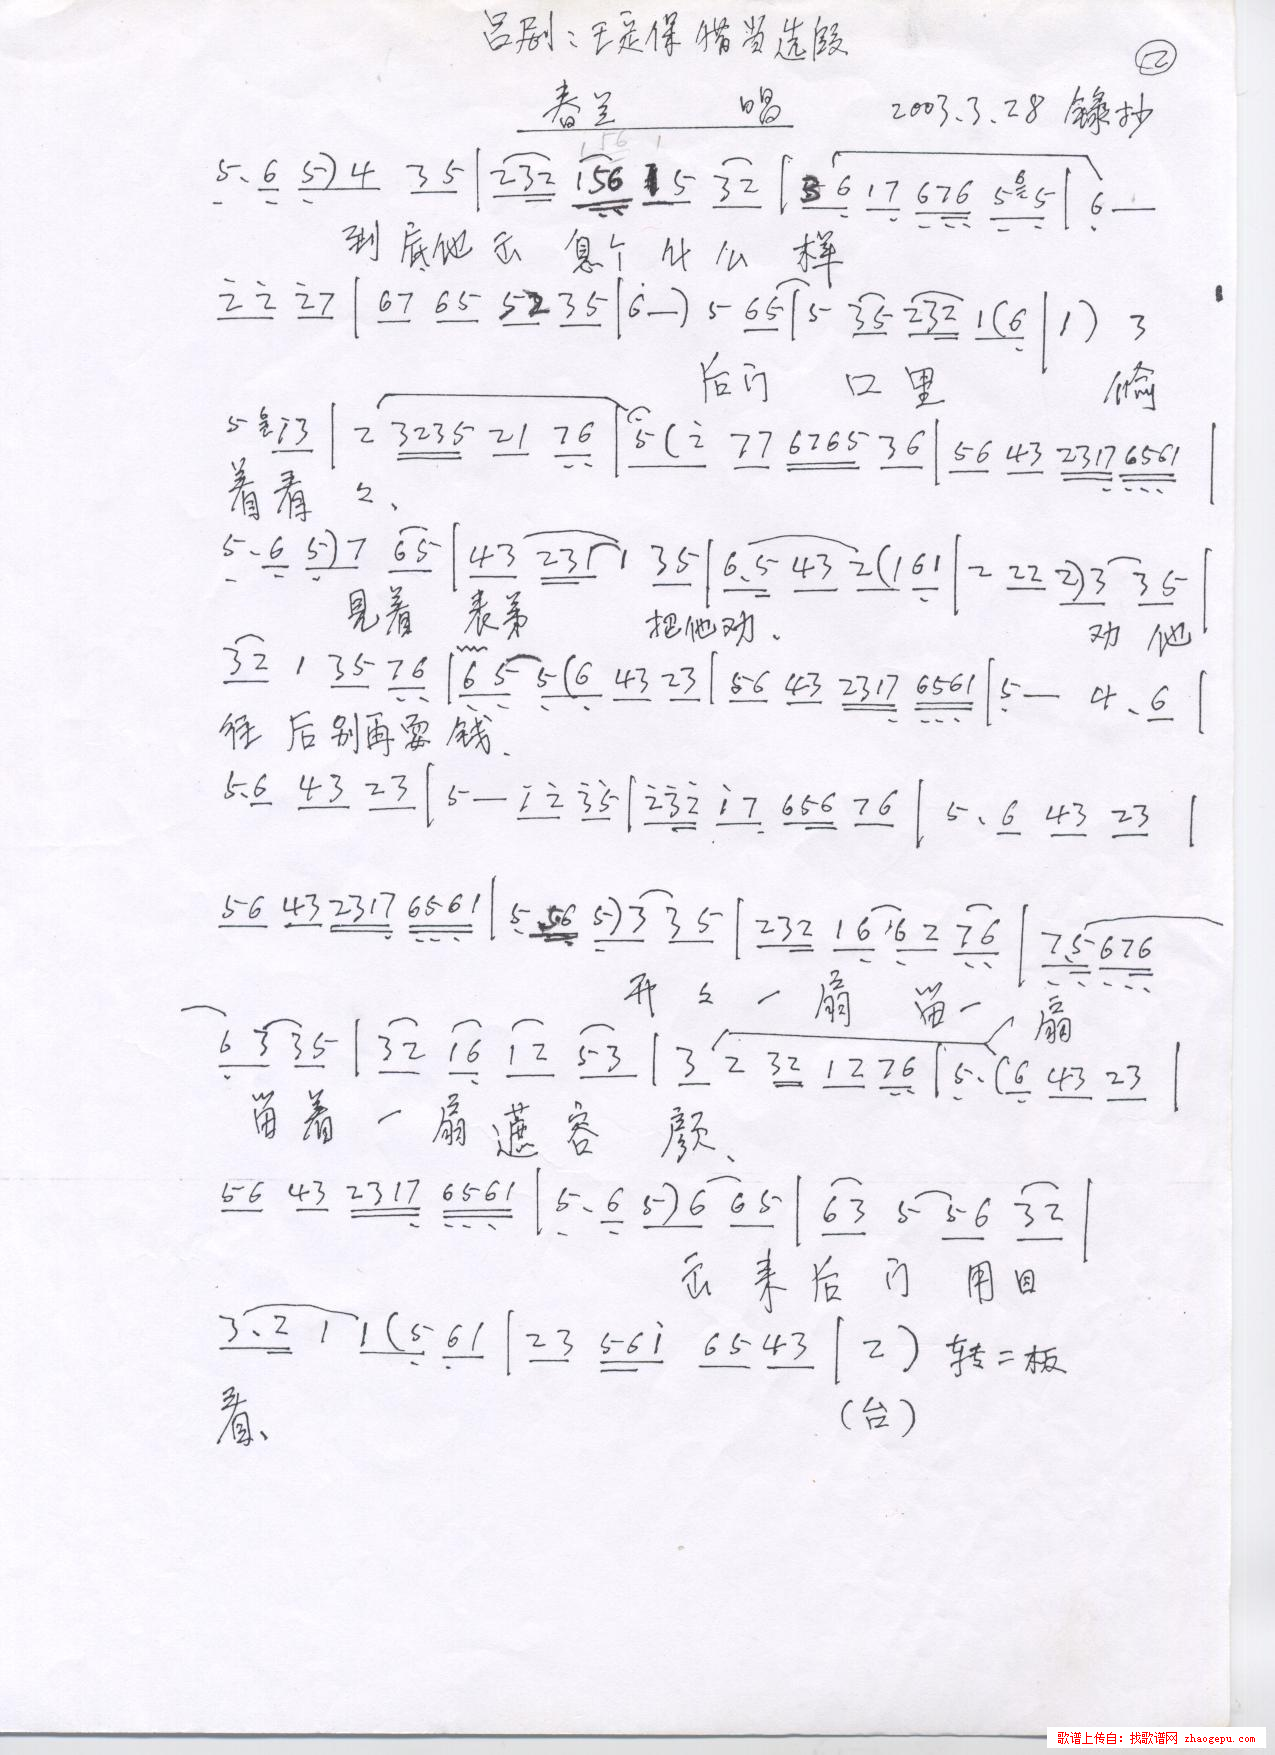 吕剧：王定保借当选段
②
春兰 唱 2003.3.28 錄抄
5. 6 5) 4 35 | 232 156 1 5 32 | 36 17 676 5 5 | 6 —
到底他出息个什么样
2 2 27 | 67 65 52 35 | 6 —) 5 65 | 5 35 232 1(6 | 1) 3
后门口里 偷
5 13 | 2 3235 21 76 | 5 (2 77 6765 36 | 56 43 2317 6561 |
着看々、
5. 6 5) 7 65 | 43 231 1 35 | 6.5 43 2(1 61 | 2 22 2) 3 35 |
见着表弟 把他劝. 劝他
32 1 35 76 | 6 5 5(6 43 23 | 56 43 2317 6561 | 5 — 4. 6 |
往后别再耍钱.
5.6 43 23 | 5 — 1 2 35 | 232 17 656 76 | 5. 6 43 23 |
56 43 2317 6561 | 5 56 5) 3 35 | 232 16 62 76 | 7.5 676
开々一扇留一扇
6 3 35 | 32 16 12 53 | 3 2 32 12 76 | 5. (6 43 23 |
留着一扇遮容颜、
56 43 2317 6561 | 5. 6 5) 6 65 | 63 5 56 32 |
出来后门用目
3.2 1 1(5 61 | 23 561 65 43 | 2) 转二板
看、 (台)
歌谱上传自：找歌谱网 zhaogepu.com